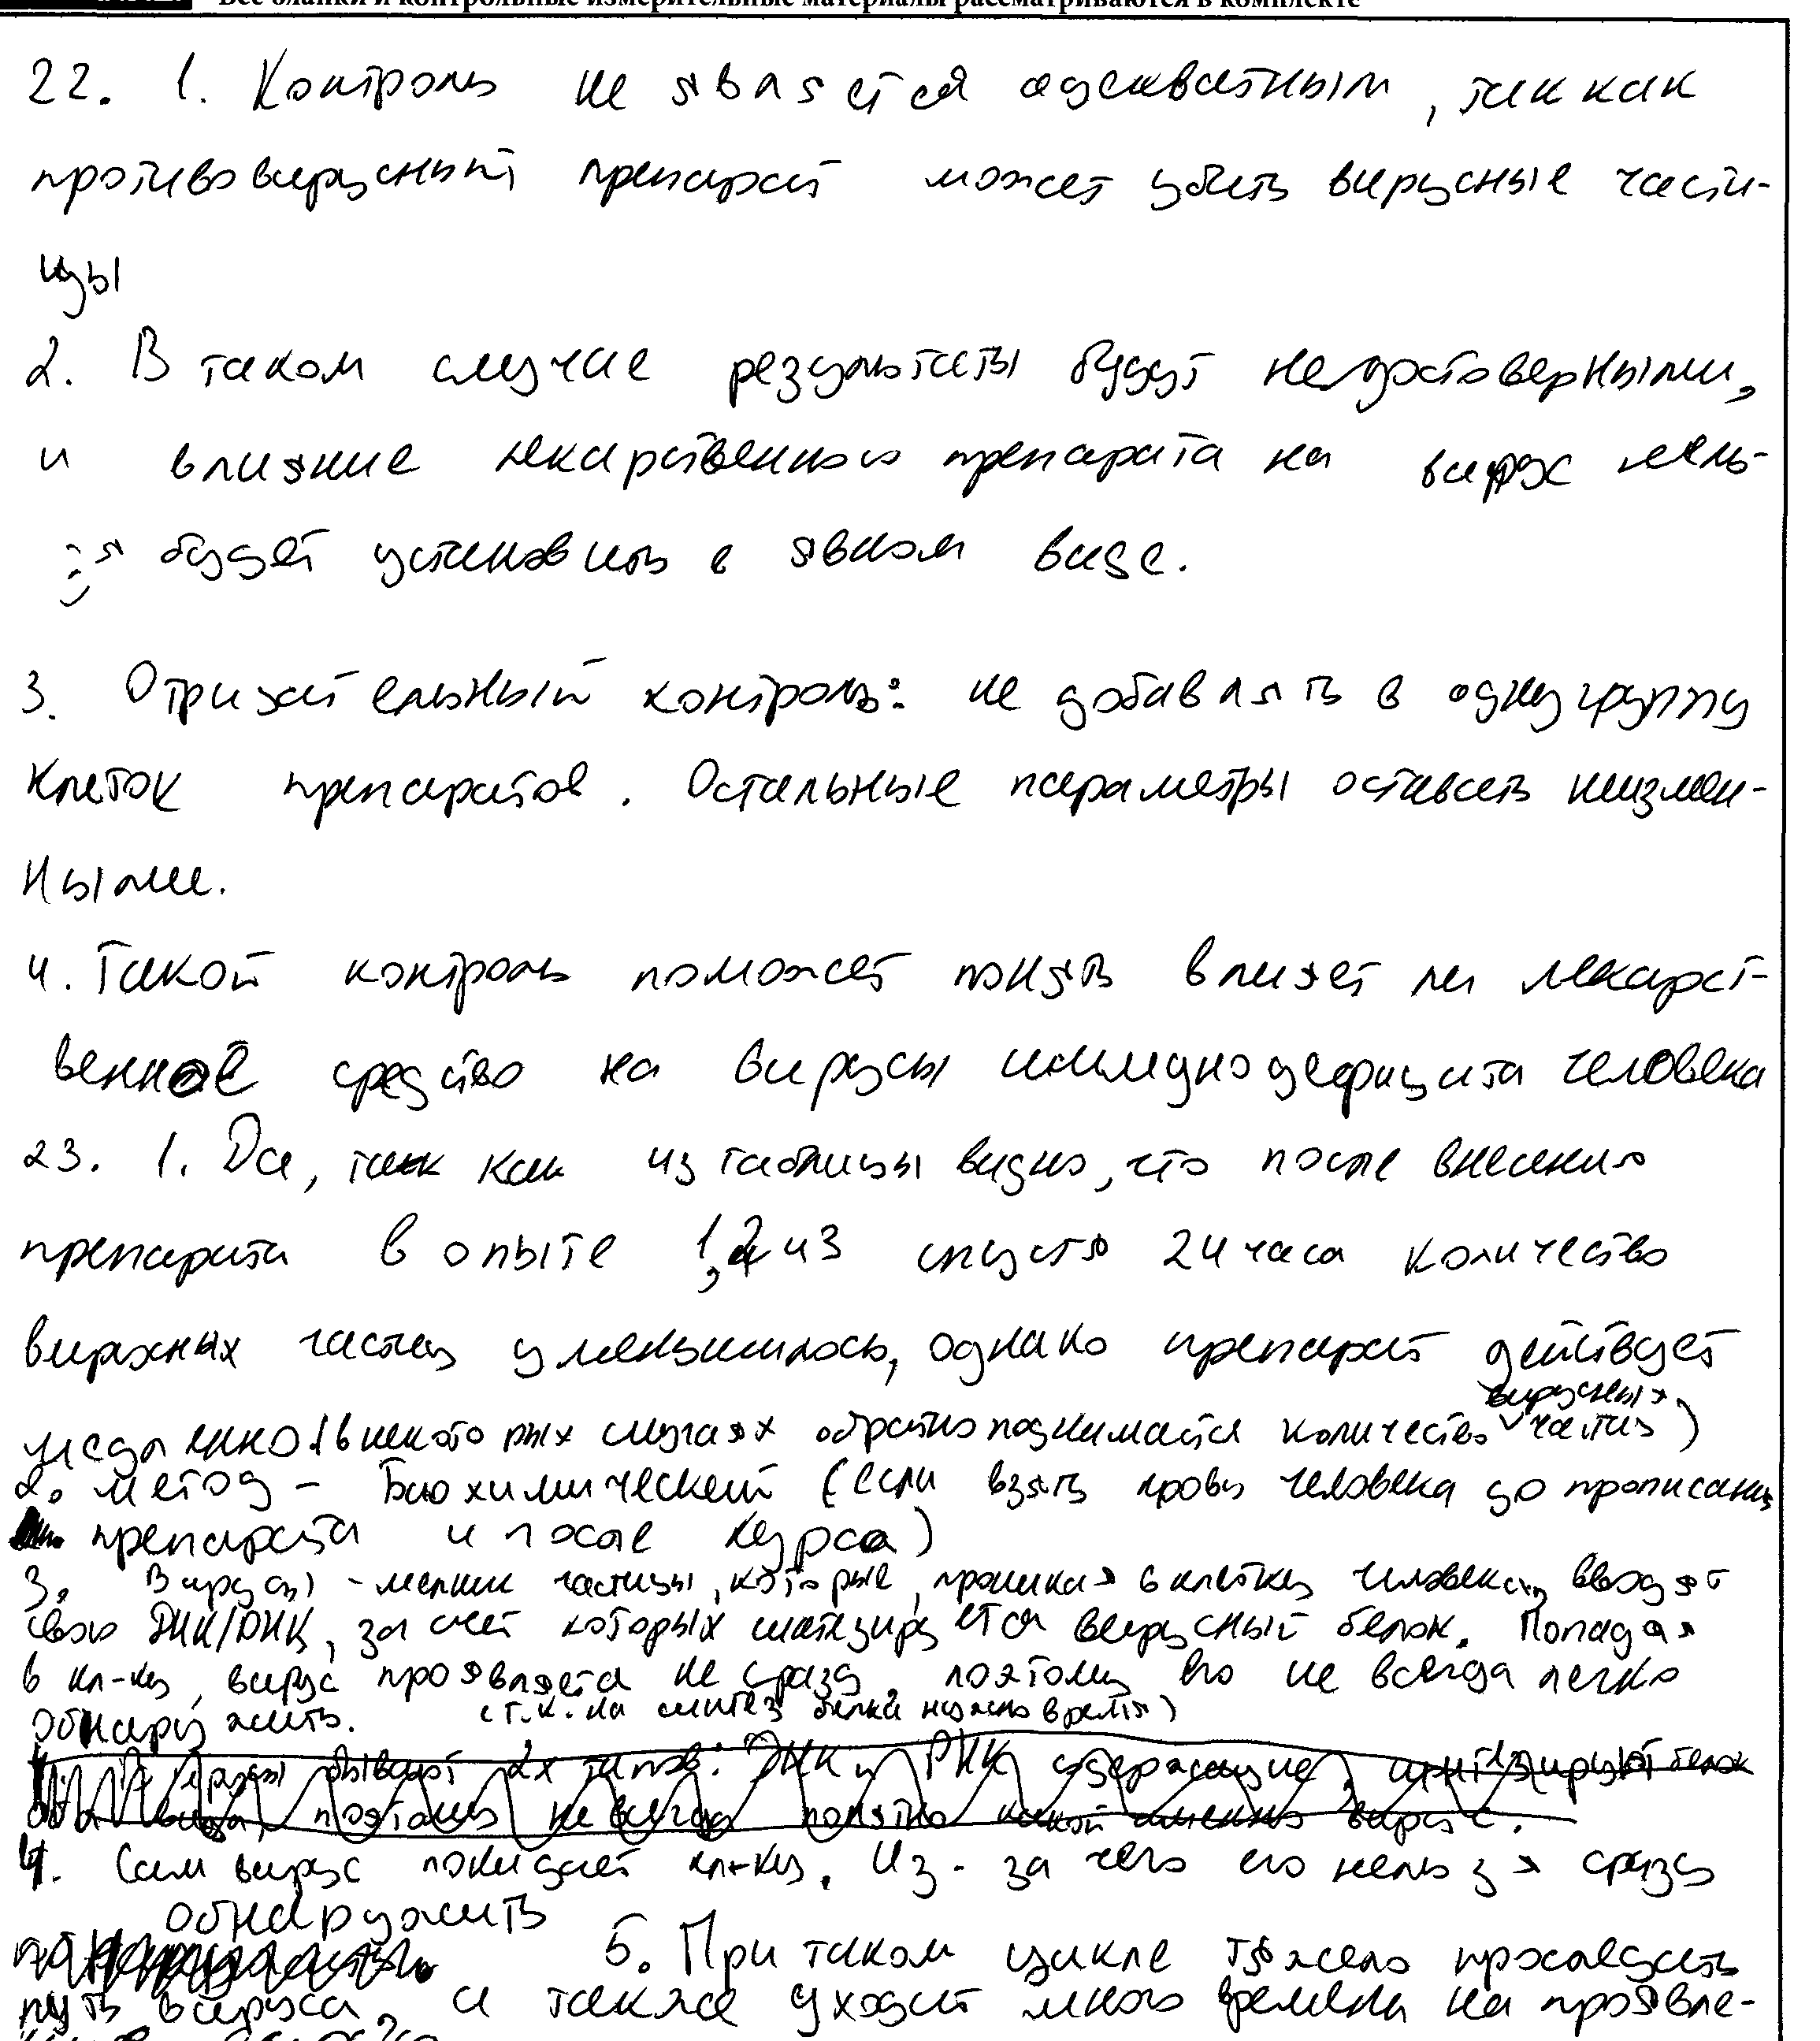 Все бланки и контрольные измерительные материалы рассматриваются в комплекте
22. 1. Контроль не является адекватным, так как
противовирусный препарат может убить вирусные части-
цы
2. В таком случае результаты будут недостоверными,
и влияние лекарственного препарата на вирус нель-
зя будет установить в явном виде.
3. Отрицательный контроль: не добавлять в одну группу
клеток препаратов. Остальные параметры оставить неизмен-
ными.
4. Такой контроль поможет понять влияет ли лекарст-
венное средство на вирусы иммунодефицита человека
23. 1. Да, так как из таблицы видно, что после внесения
препарата в опыте 1, 2 и 3 спустя 24 часа количество
вирусных частиц уменьшилось, однако препарат действует
медленно (в некоторых случаях обратно поднимается количество вирусных частиц)
2. Метод - Биохимический (если взять кровь человека до прописания
препарата и после курса)
3. Вирусы - мелкие частицы, которые, проникая в клетку человека, вводят
свою ДНК/РНК, за счет которых синтезируется вирусный белок. Попадая
в кл-ку, вирус проявляется не сразу, поэтому его не всегда легко
обнаружить. (т.к. на синтез белка нужно время)
Вирусы бывают 2х типов: ДНК и РНК содержащие, синтезируют белок
поэтому не всегда понятно какой именно вирус.
4. Сам вирус покидает кл-ку. Из-за чего его нельзя сразу
обнаружить
5. При таком цикле тяжело проследить
путь вируса, а также уходит много времени на проявле-